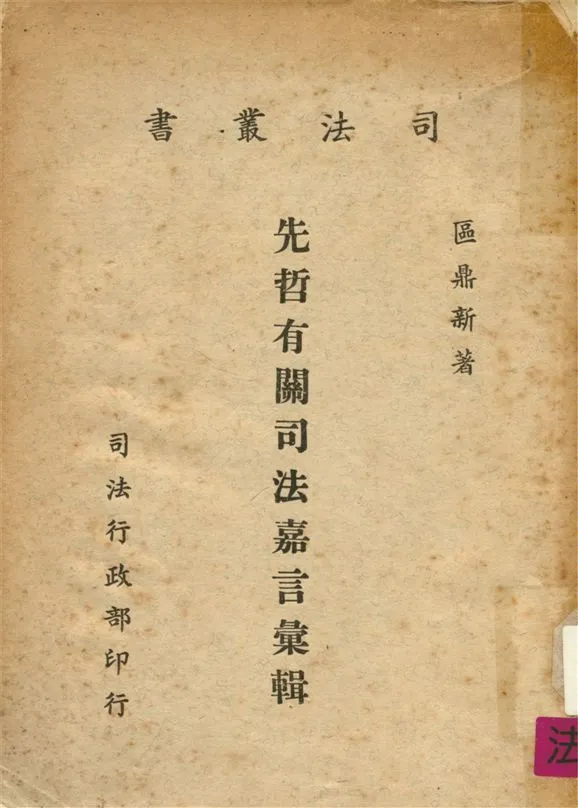 司法叢書
區鼎新著
先哲有關司法嘉言彙輯
司法行政部印行
法